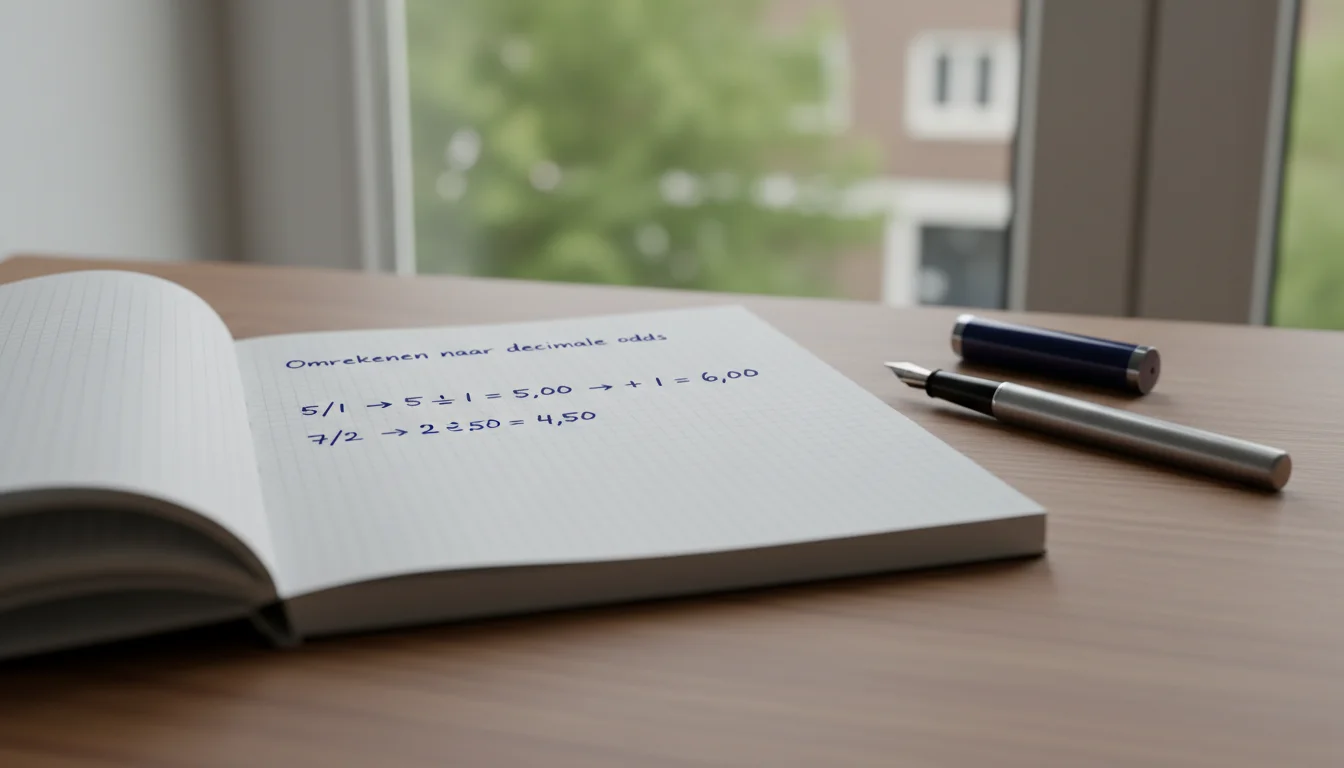 Omrekenen naar decimale odds
5/1 → 5 ÷ 1 = 5,00 → + 1 = 6,00
7/2 → 2 ÷ 50 = 4,50